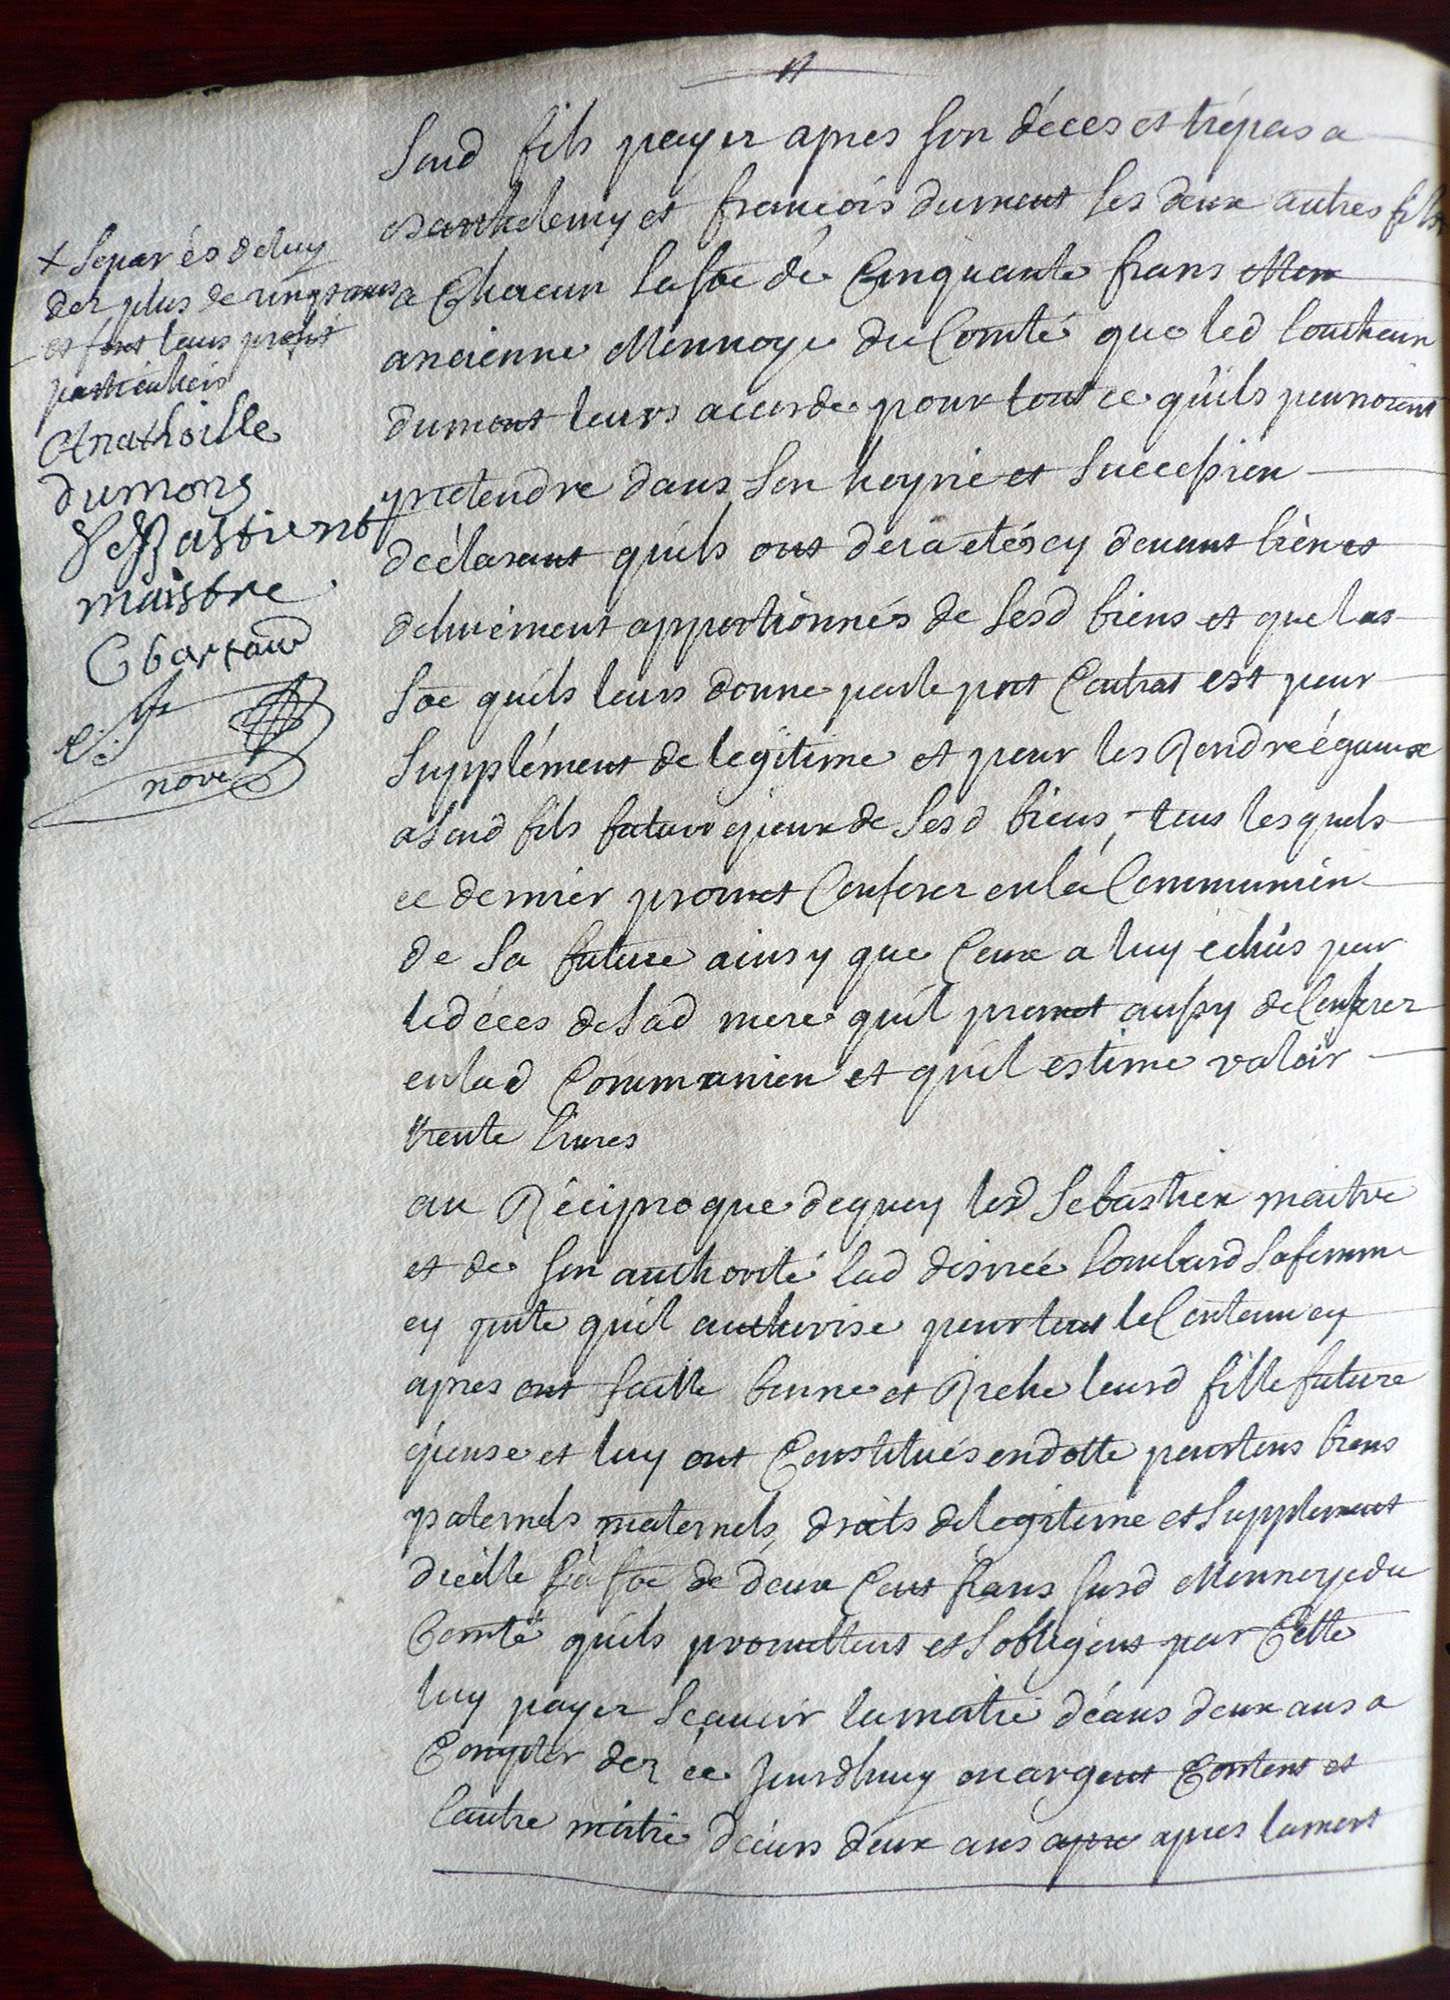 Sond fils payer apres son déces et trépas a
Barthelemy et françois dumont ses deux autres fils
a Chacun la soe de Cinquante frans Mon
ancienne Monnoye du Comté que led Loucheur
dumont leurs accorde pour tout ce qu'ils pouroient
pretendre dans son hoyrie et succession
déclarant qu'ils ont deja étés cy devant bien et
dehuement apportionnés de sesd biens et que las
soe qu'ils leurs donne par le pnt Contrat est pour
supplément de legitime et pour les Rendre égaux
a sond fils futur epoux de sesd biens, tous lesquels
ce dernier promet Conferer en la Communion
de sa future ainsy que Ceux a luy échus par
le déces de sad mere qu'il promet aussy de Conferer
en lad Communion et qu'il estime valoir
trente livres
au Réciproque de quoy led Sebastien maitre
et de son authorité lad disiree Lombard sa femme
cy pnte qu'il authorise pour tout le Contenu cy
apres ont faitte bonne et Riche leurd fille future
epouse et luy ont Constitués en dotte pour tous biens
paternels maternels, droits de legitime et supplement
d'icelle la soe de deux Cent frans susd Monnoye du
Comté qu'ils promettent et s'obligent par Cette
luy payer scavoir la moitié déans deux ans a
Compter dez ce jourdhuy en argent Content et
l'autre moitié déans deux ans apre apres la mort
+ separés de luy
dez plus de vingt ans
et font leurs profit
particuliers
Anathoille
dumong
Sebastient
maistre
C bartaud
nore